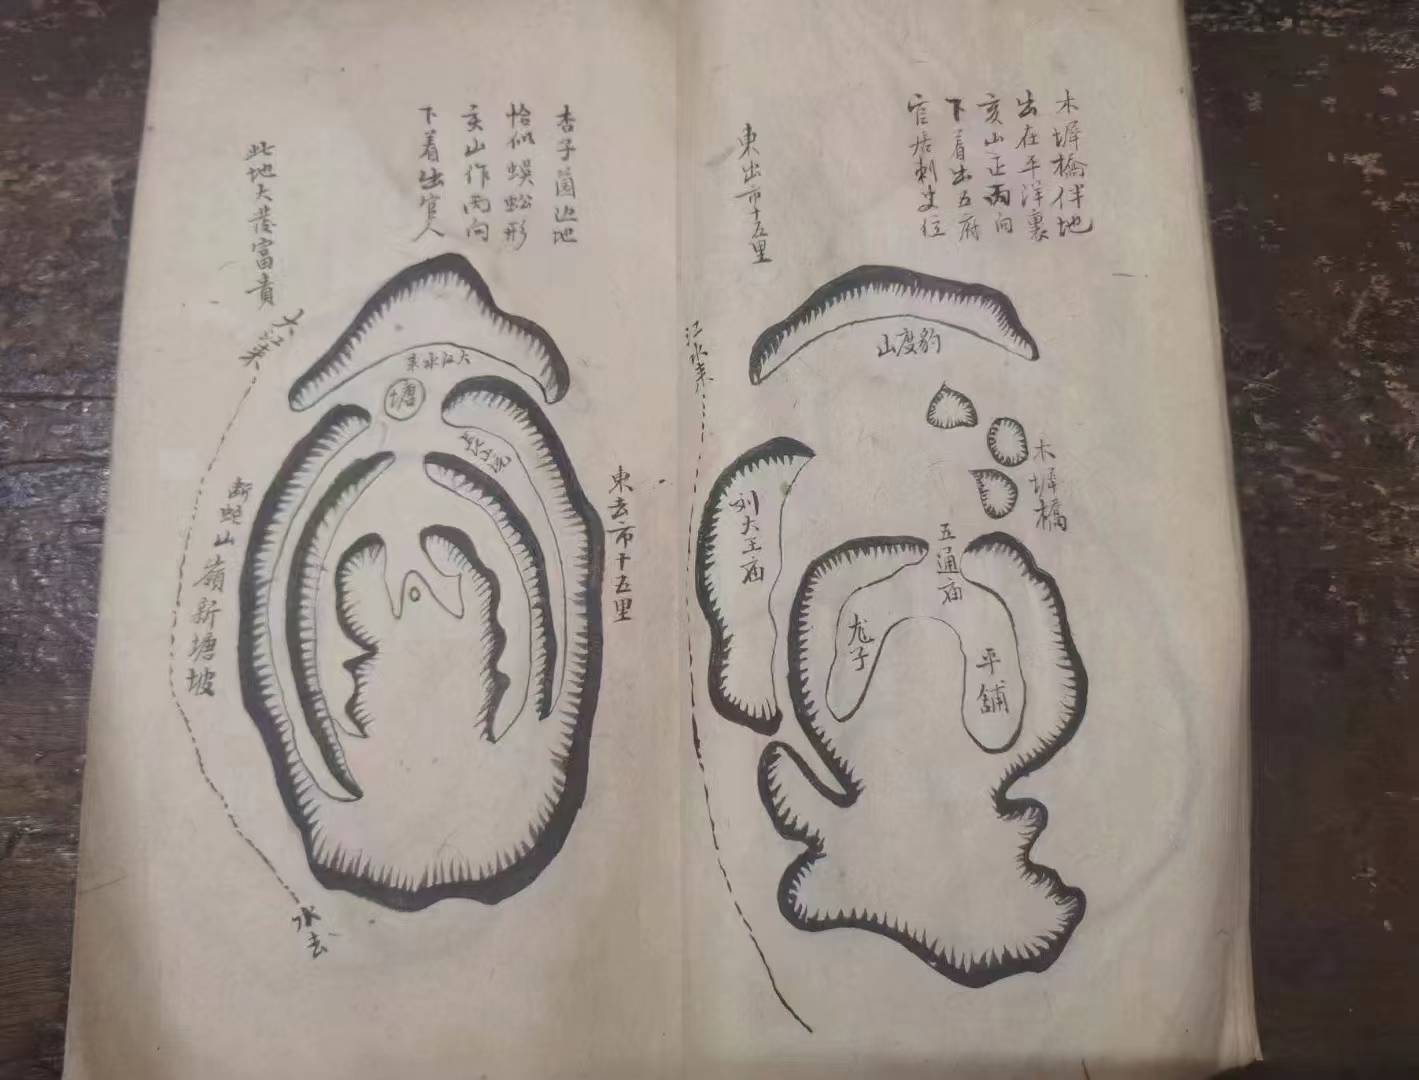 木墀橋伴地
出在平洋裏
亥山正丙向
下着出五府
官居刺史位
東出市十五里
江水来
山度豹
木墀橋
五通庙
刘大王庙
龙子
平舖
杏子園边地
恰似蜈蚣形
亥山作丙向
下着出官人
此地大發富貴
大江来
大江水来
塘
東去市十五里
断蛇山嶺新塘坡
水去